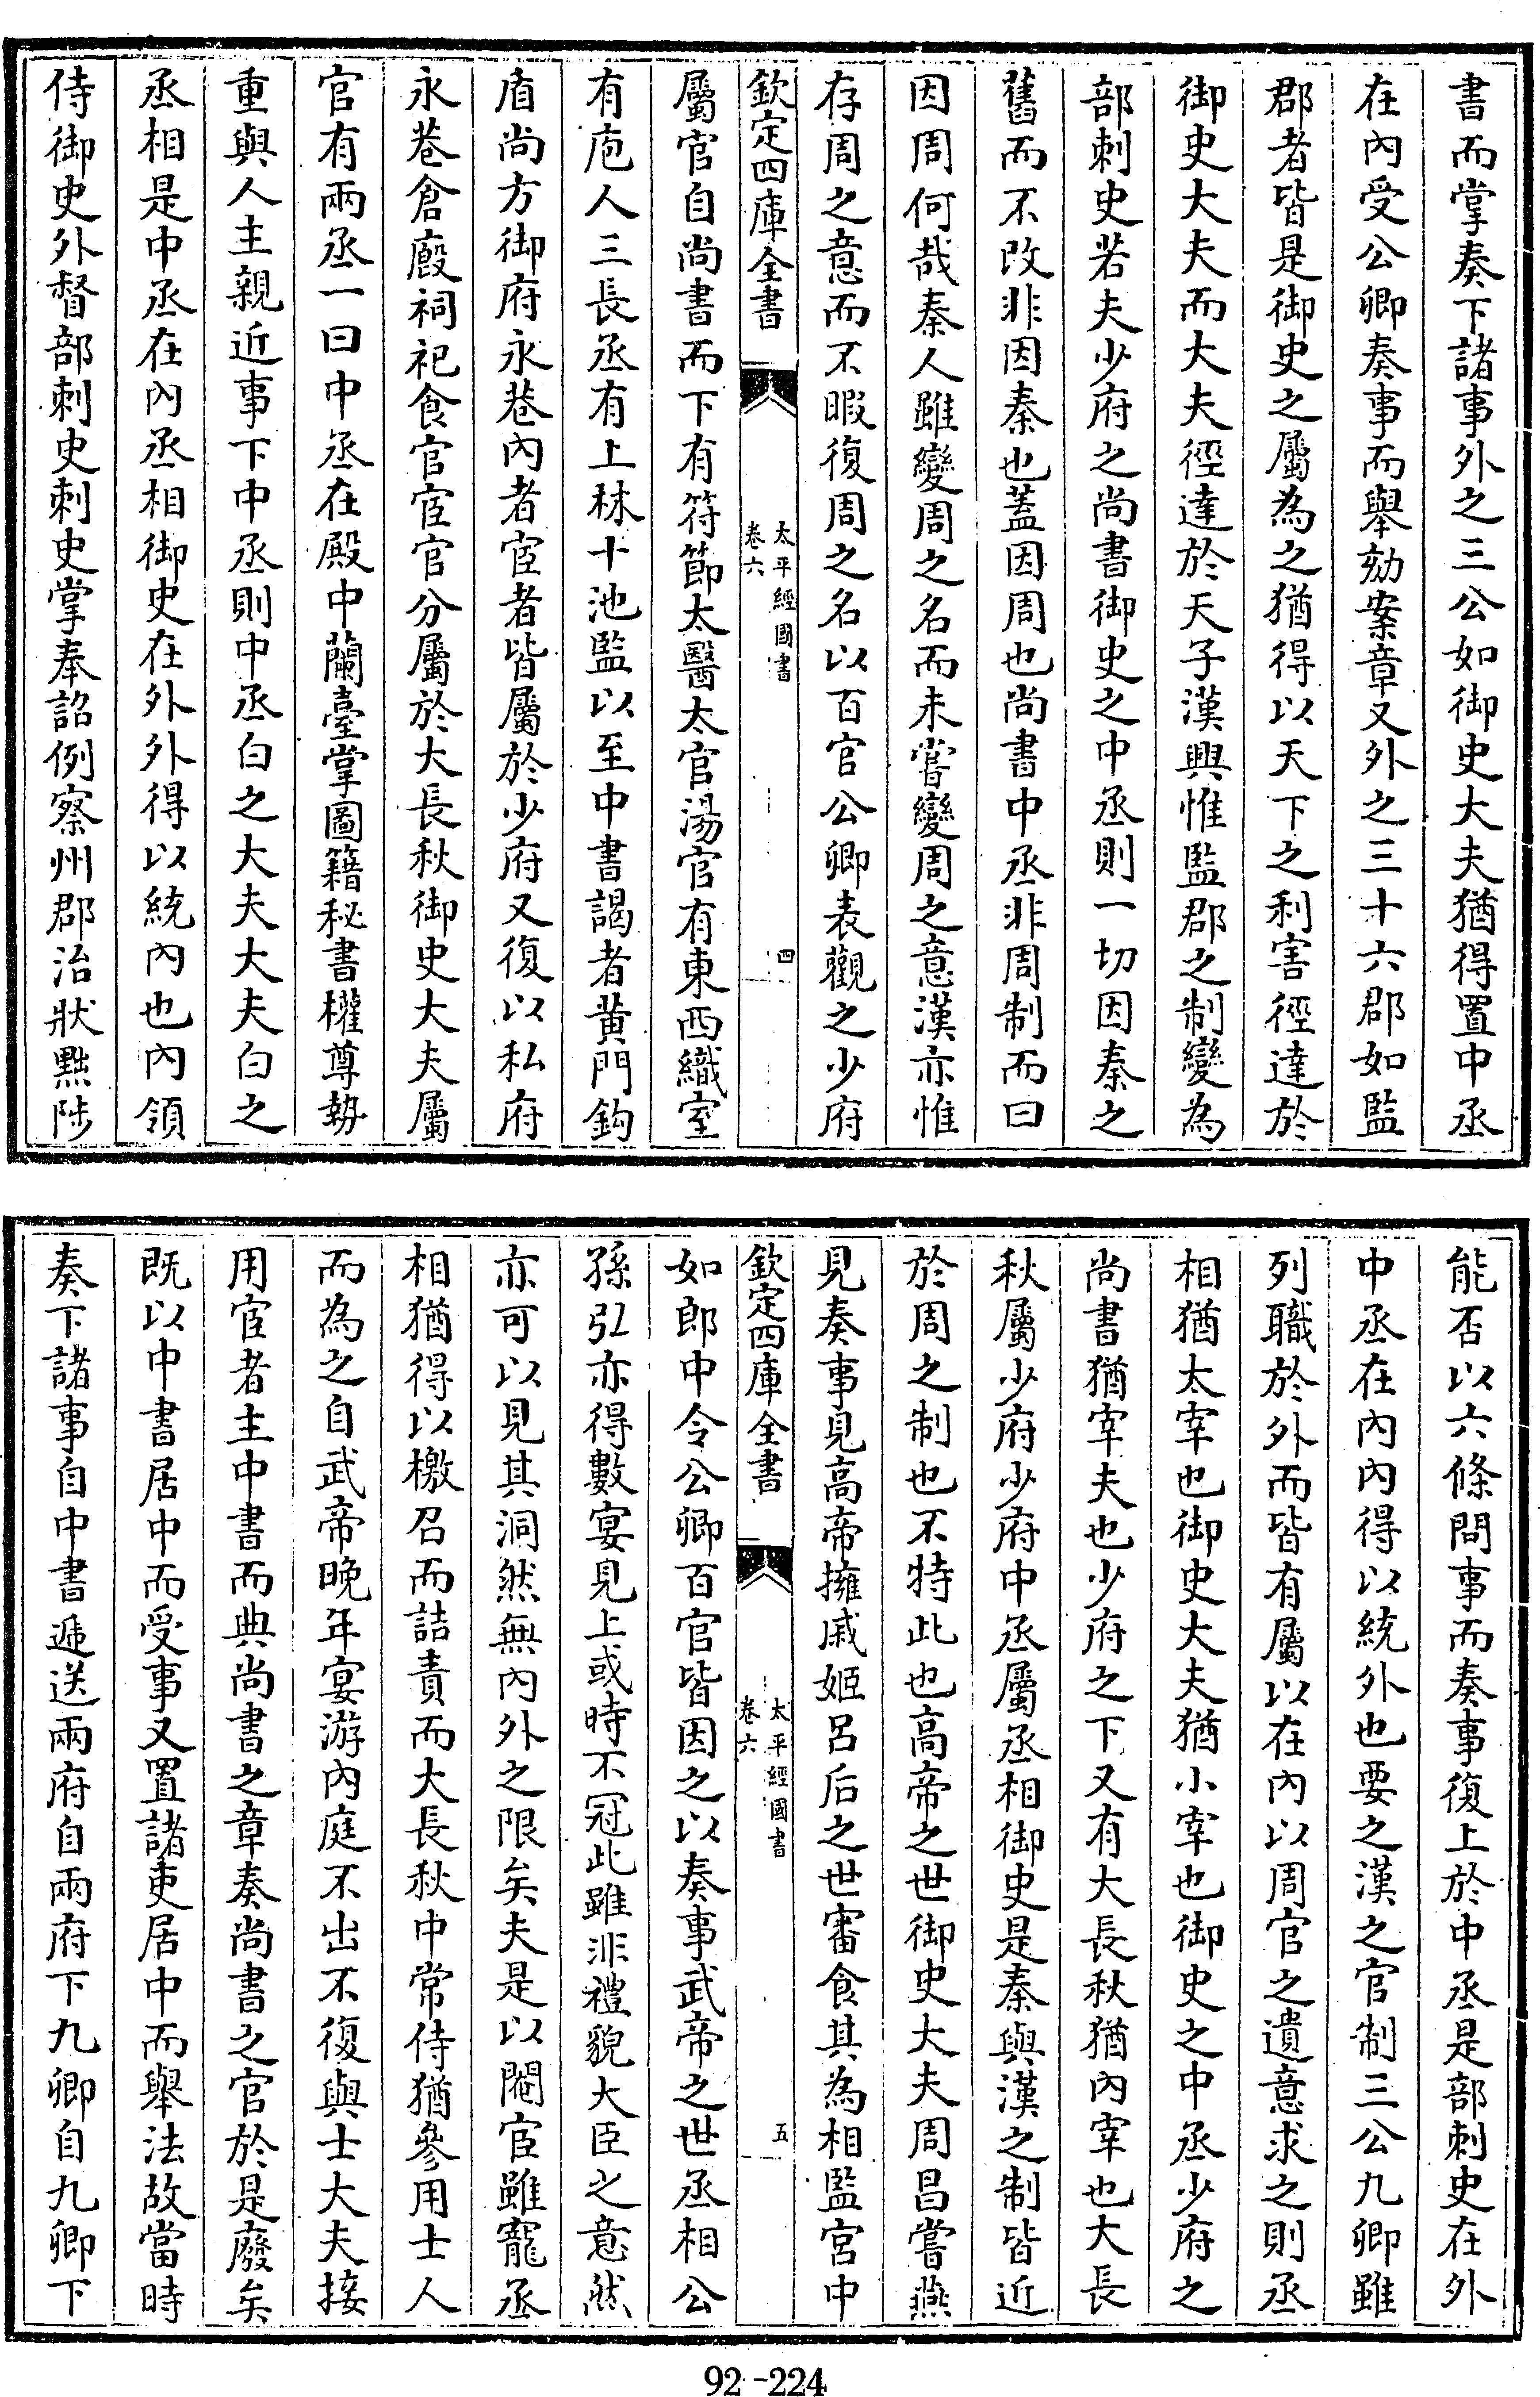 書而掌奏下諸事外之三公如御史大夫猶得置中丞
在內受公卿奏事而舉劾案章又外之三十六郡如監
郡者皆是御史之屬為之猶得以天下之利害徑達於
御史大夫而大夫徑達於天子漢興惟監郡之制變為
部刺史若夫少府之尚書御史之中丞則一切因秦之
舊而不改非因秦也蓋因周也尚書中丞非周制而曰
因周何哉秦人雖變周之名而未嘗變周之意漢亦惟
存周之意而不暇復周之名以百官公卿表觀之少府
欽定四庫全書
太平經國書
卷六
四
屬官自尚書而下有符節太醫太官湯官有東西織室
有庖人三長丞有上林十池監以至中書謁者黃門鈎
盾尚方御府永巷內者宦者皆屬於少府又復以私府
永巷倉廄祠祀食官宦官分屬於大長秋御史大夫屬
官有兩丞一曰中丞在殿中蘭臺掌圖籍秘書權尊勢
重與人主親近事下中丞則中丞白之大夫大夫白之
丞相是中丞在內丞相御史在外外得以統內也內領
侍御史外督部刺史刺史掌奉詔例察州郡治狀黜陟
能否以六條問事而奏事復上於中丞是部刺史在外
中丞在內內得以統外也要之漢之官制三公九卿雖
列職於外而皆有屬以在內以周官之遺意求之則丞
相猶太宰也御史大夫猶小宰也御史之中丞少府之
尚書猶宰夫也少府之下又有大長秋猶內宰也大長
秋屬少府少府中丞屬丞相御史是秦與漢之制皆近
於周之制也不特此也高帝之世御史大夫周昌嘗燕
見奏事見高帝擁戚姬呂后之世審食其為相監宮中
欽定四庫全書
太平經國書
卷六
五
如郎中令公卿百官皆因之以奏事武帝之世丞相公
孫弘亦得數宴見上或時不冠此雖非禮貌大臣之意然
亦可以見其洞然無內外之限矣夫是以閹宦雖寵丞
相猶得以檄召而詰責而大長秋中常侍猶參用士人
而為之自武帝晚年宴游內庭不出不復與士大夫接
用宦者主中書而典尚書之章奏尚書之官於是廢矣
既以中書居中而受事又置諸吏居中而舉法故當時
奏下諸事自中書遞送兩府自兩府下九卿自九卿下
92-224